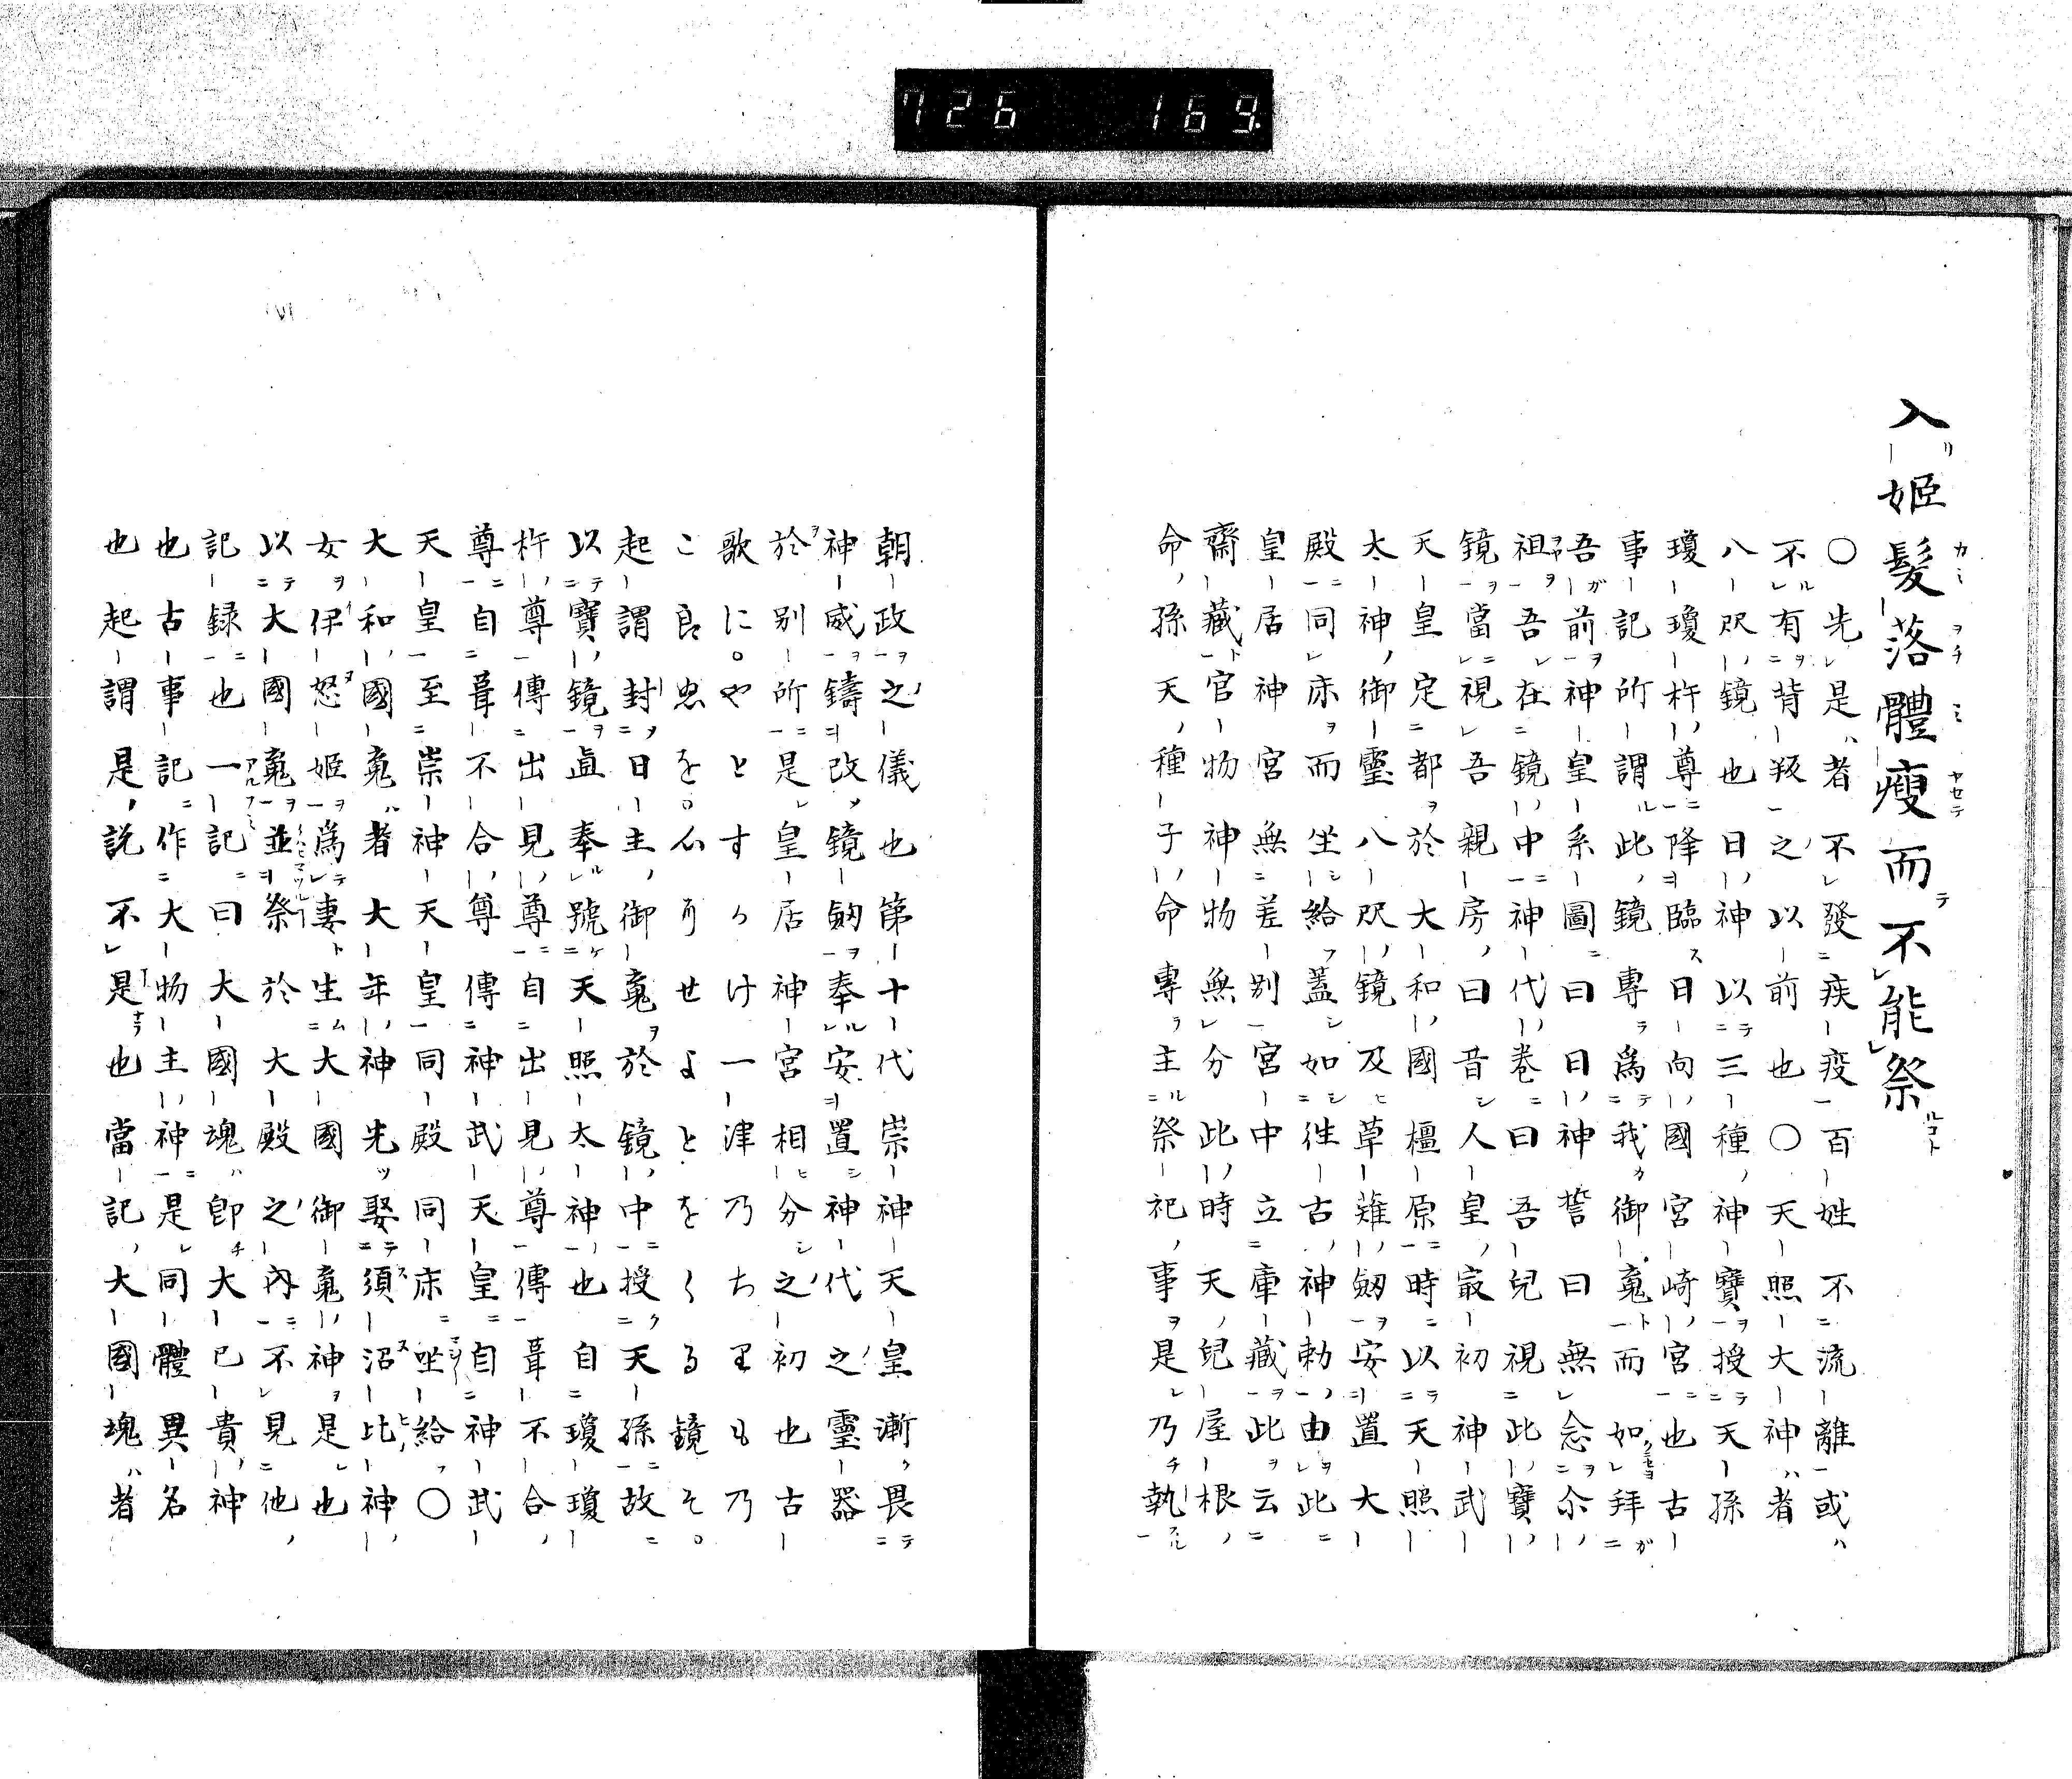 726 169
入姫髮落體瘦而不能祭
〇先是者不發疾疫百姓不流離或
不有背叛之以前也〇天照大神者
八咫鏡也日神以三種神寶授天孫
瓊瓊杵尊降臨日向國宮崎宮也古
事記所謂此鏡專爲我御䰟而如拜
吾前神皇系圖曰日神誓曰無念尒
祖吾在鏡中神代卷曰吾兒視此寶
鏡當視吾親房曰昔人皇最初神武
天皇定都於大和國橿原時以天照
太神御靈八咫鏡及草薙劔安置大
殿同床而坐給蓋如徃古神勅由此
皇居神宮無差别宮中立庫藏此云
齋藏官物神物無分此時天兒屋根
命孫天種子命專主祭祀事是乃執
朝政之儀也第十代崇神天皇漸畏
神威鑄改鏡劔奉安置神代之靈器
於别所是皇居神宮相分之初也古
歌に。やとすかけ一津乃ちりも乃
こ良忠を。心りせよとをくる鏡そ。
起謂封日主御䰟於鏡中授天孫故
以寶鏡直奉號天照太神也自瓊瓊
杵尊傳出見尊自出見尊傳葺不合
尊自葺不合尊傳神武天皇自神武
天皇至崇神天皇同殿同床坐給〇
大和國䰟者大年神先娶須沼比神
女伊怒姫爲妻生大國御䰟神是也
以大國䰟並祭於大殿之內不見他
記録也一記曰大國魂即大已貴神
也古事記作大物主神是同體異名
也起謂是說不是也當記大國塊者